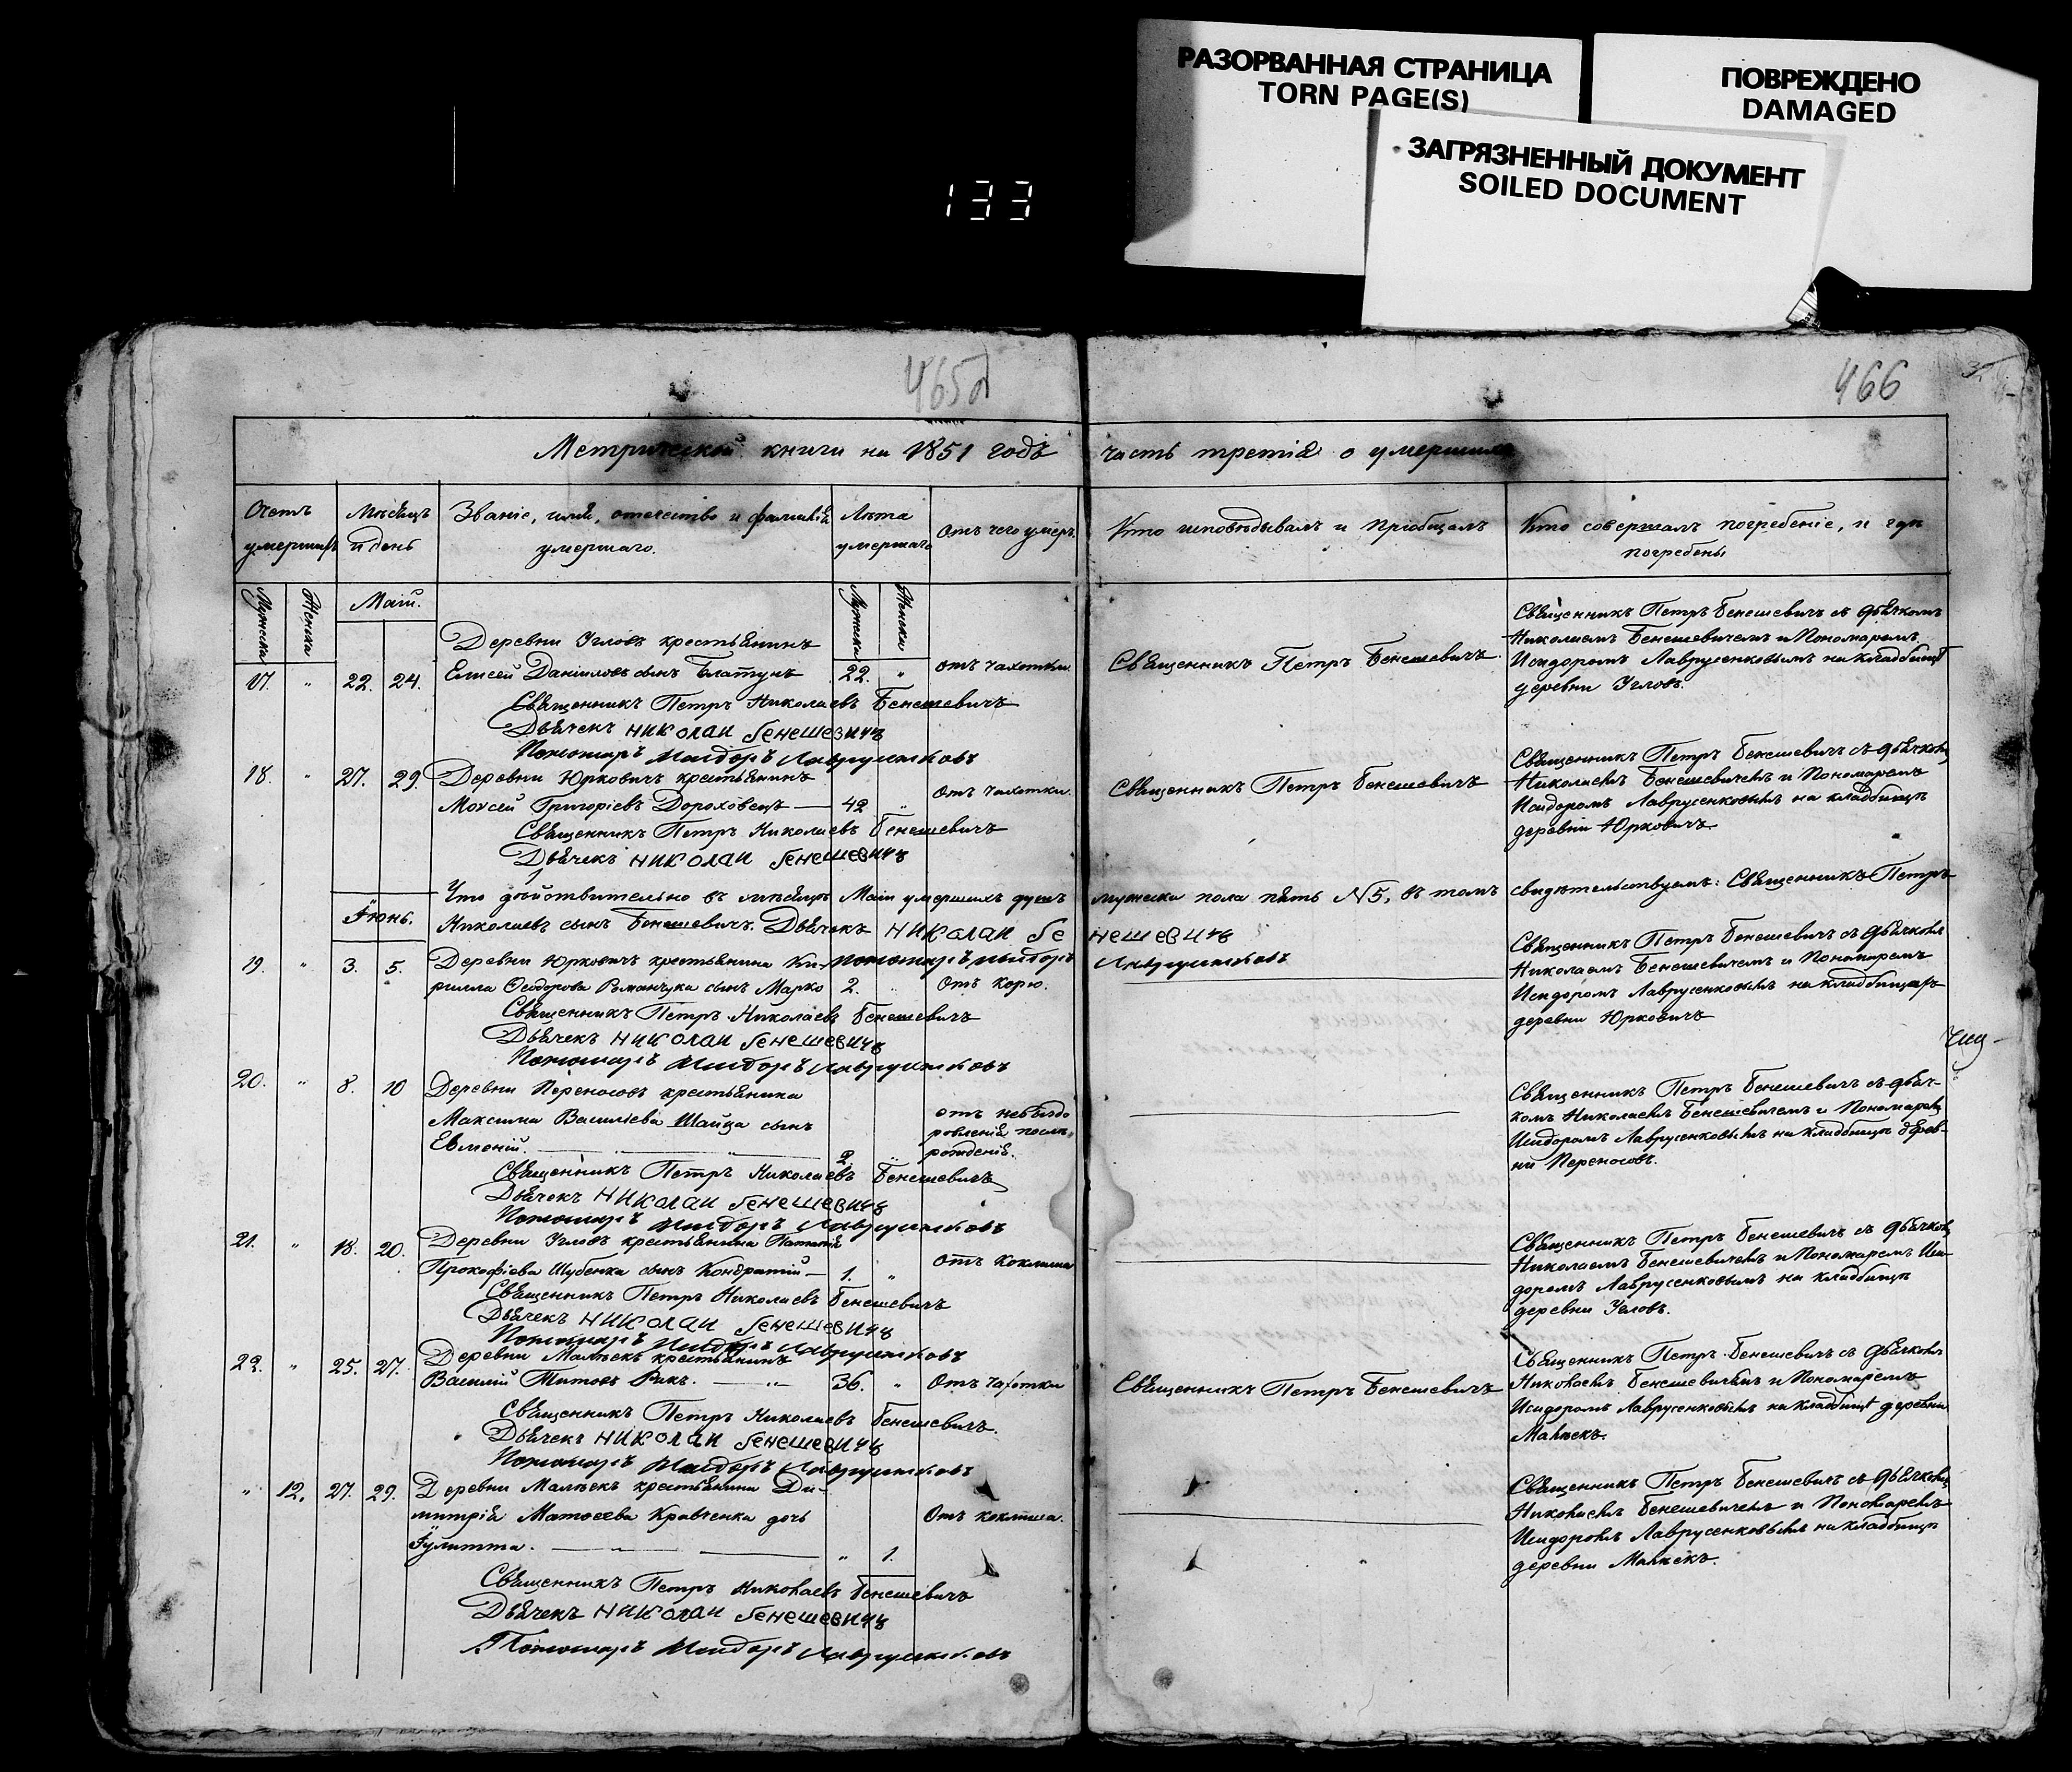 РАЗОРВАННАЯ СТРАНИЦА
TORN PAGE(S)
ПОВРЕЖДЕНО
DAMAGED
ЗАГРЯЗНЕННЫЙ ДОКУМЕНТ
SOILED DOCUMENT
133
465об
466
Метрической книги на 1851 годъ часть третія о умершихъ
Счетъ умершихъ
Мѣсяцъ и день
Званіе, имя, отечество и фамилія умершаго.
Лѣта умершаго
Отъ чего умеръ.
Кто исповѣдывалъ и пріобщалъ
Кто совершалъ погребеніе, и гдѣ погребены
Мужеска
Женска
Маій.
Мужеска
Женска
Деревни Угловъ крестьянинъ
17. " 22. 24. Елисей Даніиловъ сынъ Блатунъ 22. " отъ чахотки.
Священникъ Петръ Николаевъ Бенешевичъ
Дьячекъ Николаи Бенешевичъ
Пономаръ Исидоръ Лаврусенковъ
Священникъ Петръ Бенешевичъ.
Священникъ Петръ Бенешевичъ съ дьячкомъ
Николаемъ Бенешевичемъ и Пономаремъ
Исидоромъ Лаврусенковымъ на кладбищѣ
деревни Угловъ.
18. " 27. 29. Деревни Юрковичъ крестьянинъ
Моѵсей Григоріевъ Дороховецъ — 42 " Отъ чахотки.
Священникъ Петръ Николаевъ Бенешевичъ
Дьячекъ Николаи Бенешевичъ
Священникъ Петръ Бенешевичъ
Священникъ Петръ Бенешевичъ съ дьячкомъ
Николаемъ Бенешевичемъ и Пономаремъ
Исидоромъ Лаврусенковымъ на кладбищѣ
деревни Юрковичъ.
Что дѣйствительно въ мѣсяцѣ Маіи умершихъ душъ мужеска пола пять №5, въ томъ свидѣтельствуемъ: Священникъ Петръ
Николаевъ сынъ Бенешевичъ. Дьячекъ Николаи Бенешевичъ
Пономаръ Исидоръ Лаврусенковъ
Іюнь.
19. " 3. 5. Деревни Юрковичъ крестьянина Ки-
рилла Ѳеодорова Романчука сынъ Марко 2. " Отъ корю.
Священникъ Петръ Николаевъ Бенешевичъ
Дьячекъ Николаи Бенешевичъ
Пономаръ Исидоръ Лаврусенковъ
Священникъ Петръ Бенешевичъ съ дьячкомъ
Николаемъ Бенешевичемъ и Пономаремъ
Исидоромъ Лаврусенковымъ на кладбищѣ
деревни Юрковичъ
20. " 8. 10 Деревни Переносовъ крестьянина
Максима Василіева Шайца сынъ
Евменій. 2 " отъ невыздо
ровленія послѣ
рожденія.
Священникъ Петръ Николаевъ Бенешевичъ
Дьячекъ Николаи Бенешевичъ
Пономаръ Исидоръ Лаврусенковъ
Священникъ Петръ Бенешевичъ съ дьяч-
комъ Николаемъ Бенешевичемъ и Пономаремъ
Исидоромъ Лаврусенковымъ на кладбищѣ дерев-
ни Переносовъ.
21. " 18. 20. Деревни Угловъ крестьянина
Прокофіева Шубенка сынъ Кондратій — 1. " отъ коклюша
Священникъ Петръ Николаевъ Бенешевичъ
Дьячекъ Николаи Бенешевичъ
Пономаръ Исидоръ Лаврусенковъ
Священникъ Петръ Бенешевичъ съ дьячкомъ
Николаемъ Бенешевичемъ и Пономаремъ Иси-
доромъ Лаврусенковымъ на кладбищѣ
деревни Угловъ.
22. " 25. 27. Деревни Малѣекъ крестьянинъ
Василій Титовъ Рикъ. 36. " Отъ чахотки
Священникъ Петръ Николаевъ Бенешевичъ.
Дьячекъ Николаи Бенешевичъ
Пономаръ Исидоръ Лаврусенковъ
Священникъ Петръ Бенешевичъ
Священникъ Петръ Бенешевичъ съ дьячкомъ
Николаемъ Бенешевичемъ и Пономаремъ
Исидоромъ Лаврусенковымъ на кладбищѣ деревни
Малѣекъ.
" 12. 27. 29. Деревни Малѣекъ крестьянина Ди-
митрія Матѳеева Кравченка дочь
Іулитта. " 1. Отъ коклюша.
Священникъ Петръ Николаевъ Бенешевичъ
Дьячекъ Николаи Бенешевичъ
Пономаръ Исидоръ Лаврусенковъ
Священникъ Петръ Бенешевичъ съ дьячкомъ
Николаемъ Бенешевичемъ и Пономаремъ
Исидоромъ Лаврусенковымъ на кладбищѣ
деревни Малѣекъ.